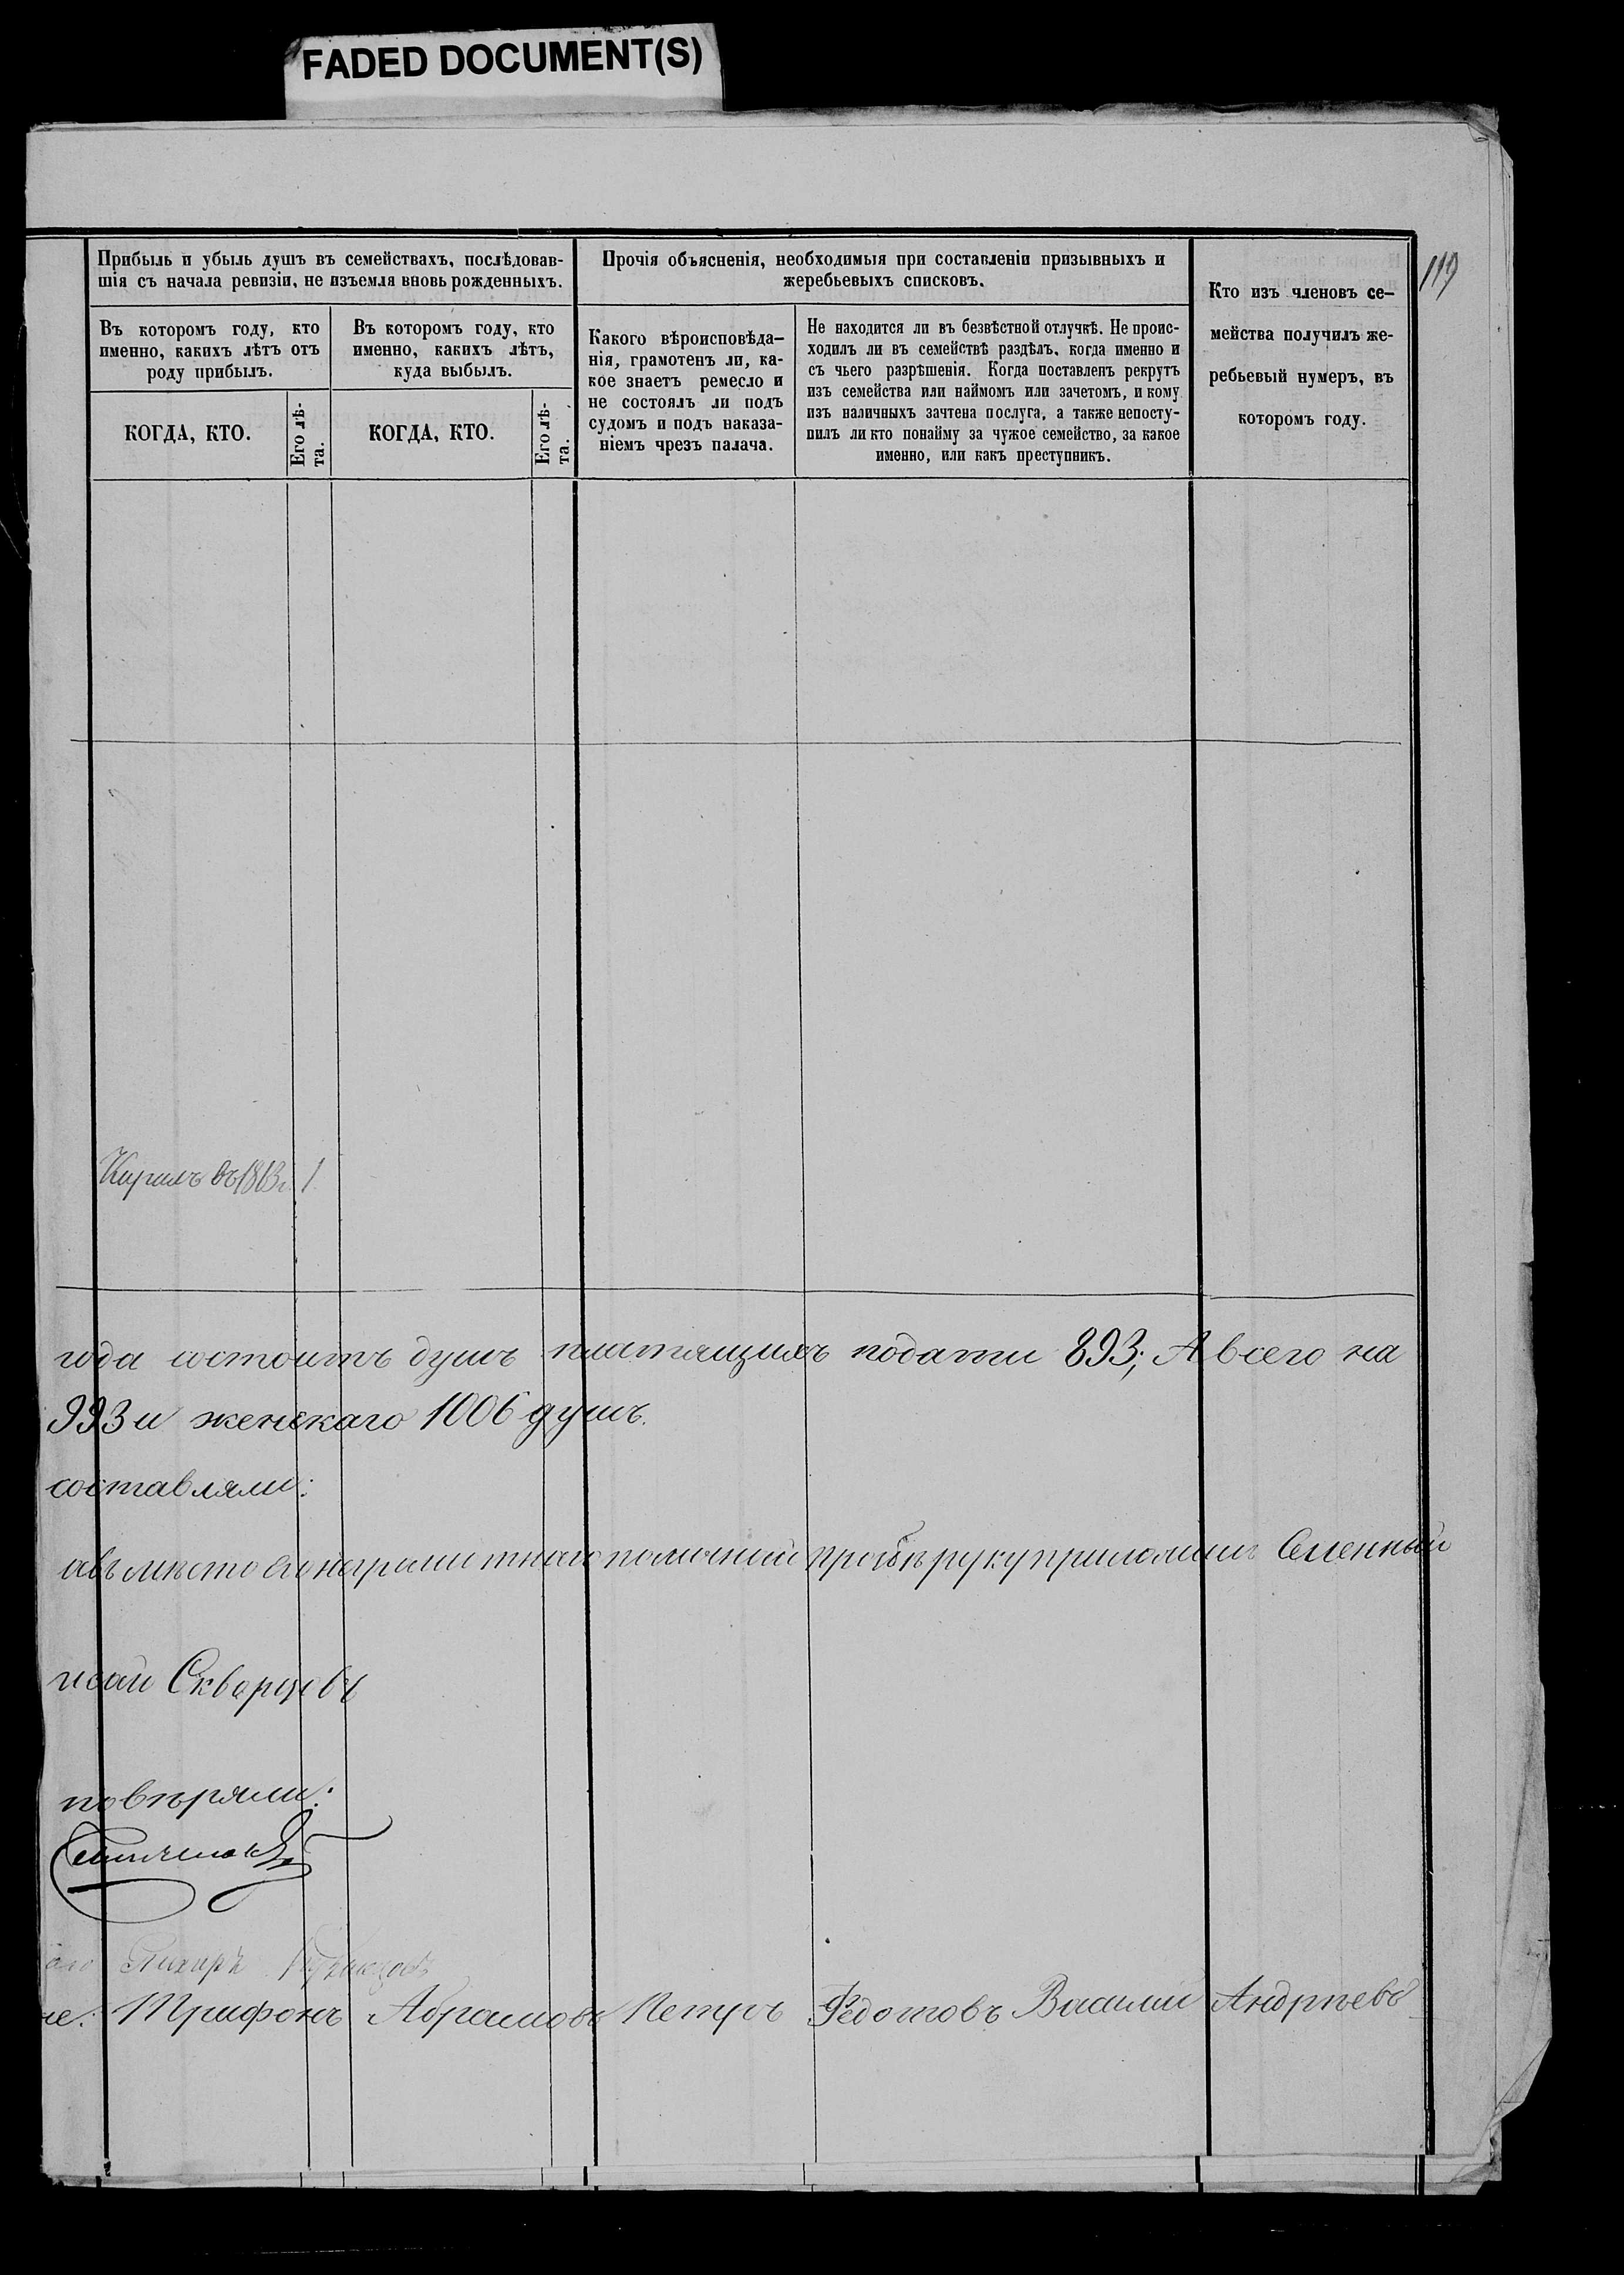 FADED DOCUMENT(S)
119
Прибыль и убыль душъ въ семействахъ, послѣдовав-
шія съ начала ревизіи, не изъемля вновь рожденныхъ.
Въ которомъ году, кто
именно, какихъ лѣтъ отъ
роду прибылъ.
Въ которомъ году, кто
именно, какихъ лѣтъ,
куда выбылъ.
КОГДА, КТО.
Его лѣ-
та.
КОГДА, КТО.
Его лѣ-
та.
Прочія объясненія, необходимыя при составленіи призывныхъ и
жеребьевыхъ списковъ.
Какого вѣроисповѣда-
нія, грамотенъ ли, ка-
кое знаетъ ремесло и
не состоялъ ли подъ
судомъ и подъ наказа-
ніемъ чрезъ палача.
Не находится ли въ безвѣстной отлучкѣ. Не проис-
ходилъ ли въ семействѣ раздѣлъ, когда именно и
съ чьего разрѣшенія. Когда поставленъ рекрутъ
изъ семейства или наймомъ или зачетомъ, и кому
изъ наличныхъ зачтена послуга, а также непосту-
пилъ ли кто понайму за чужое семейство, за какое
именно, или какъ преступникъ.
Кто изъ членовъ се-
мейства получилъ же-
ребьевый нумеръ, въ
которомъ году.
Кирилъ въ 1
года состоитъ душъ платящихъ подати 893; А всего на
993 и женскаго 1006 душъ.
составляли:
вмѣсто его неграмотнаго поличной прозбѣ руку приложилъ
Скварцовъ
повѣряли:
Трифонъ Абрамовъ Петръ Федотовъ Василій Андреевъ